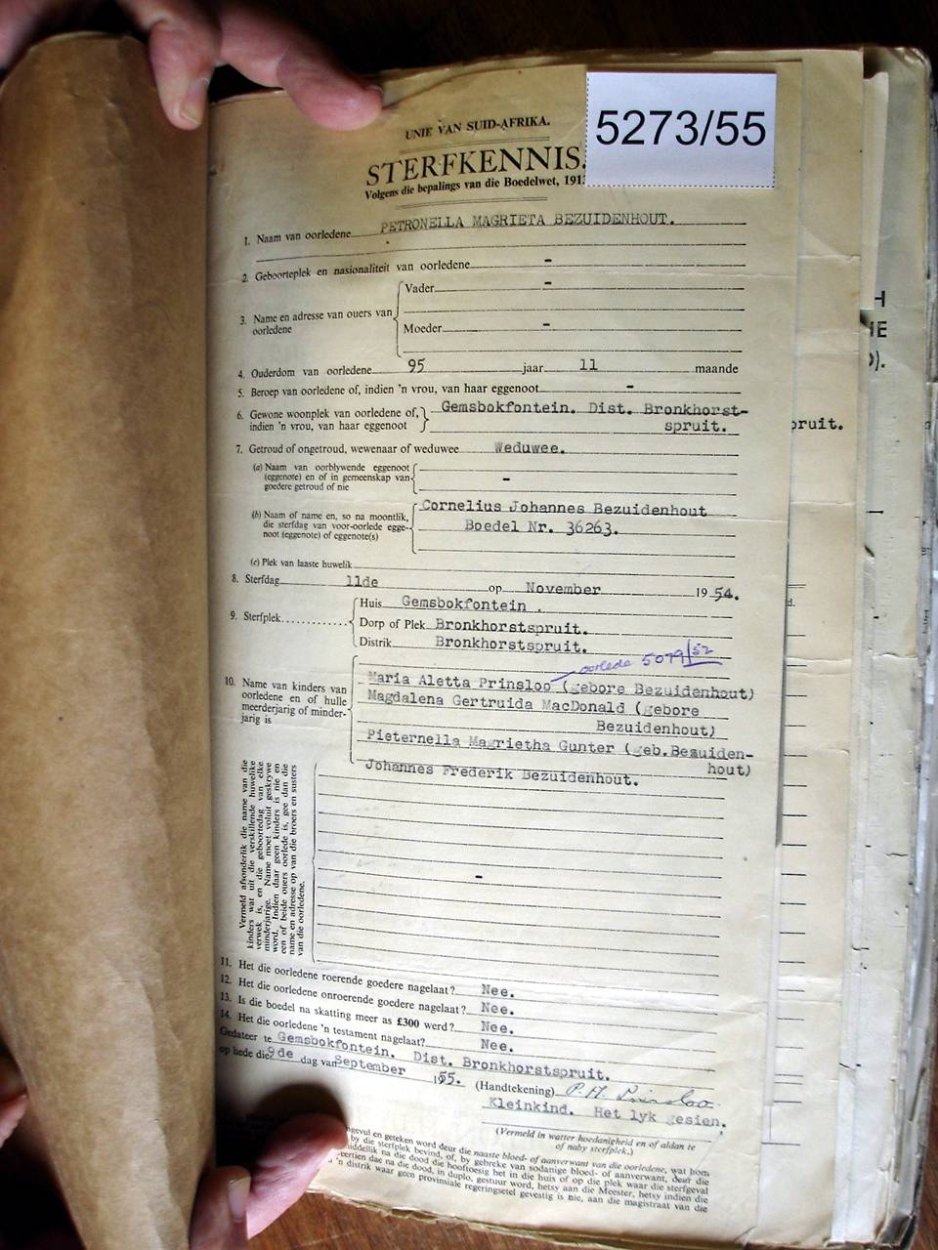 5273/55
UNIE VAN SUID-AFRIKA.
STERFKENNIS
Volgens die bepalings van die Boedelwet, 191
1. Naam van oorledene PETRONELLA MAGRIETA BEZUIDENHOUT.
2. Geboorteplek en nasionaliteit van oorledene -
3. Name en adresse van ouers van oorledene
Vader -
Moeder -
4. Ouderdom van oorledene 95 jaar 11 maande
5. Beroep van oorledene of, indien 'n vrou, van haar eggenoot -
6. Gewone woonplek van oorledene of, indien 'n vrou, van haar eggenoot
Gemsbokfontein. Dist. Bronkhorst-
spruit.
7. Getroud of ongetroud, wewenaar of weduwee Weduwee.
(a) Naam van oorblywende eggenoot
(eggenote) en of in gemeenskap van
goedere getroud of nie
-
(b) Naam of name en, so na moontlik,
die sterfdag van voor-oorlede egge-
noot (eggenote) of eggenote(s)
Cornelius Johannes Bezuidenhout
Boedel Nr. 36263.
(c) Plek van laaste huwelik
8. Sterfdag 11de op November 1954.
9. Sterfplek
Huis Gemsbokfontein .
Dorp of Plek Bronkhorstspruit.
Distrik Bronkhorstspruit.
oorlede 5079/52
10. Name van kinders van
oorledene en of hulle
meerderjarig of minder-
jarig is
Maria Aletta Prinsloo (gebore Bezuidenhout)
Magdalena Gertruida MacDonald (gebore
Bezuidenhout)
Pieternella Magrietha Gunter (geb.Bezuiden-
hout)
Johannes Frederik Bezuidenhout.
Vermeld afsonderlik die name van die
kinders wat uit die verskillende huwelike
verwek is, en die geboortedag van elke
minderjarige. Name moet voluit geskrywe
word. Indien daar geen kinders is nie en
een of beide ouers oorlede is, gee dan die
name en adresse op van die broers en susters
van die oorledene.
-
11. Het die oorledene roerende goedere nagelaat? Nee.
12. Het die oorledene onroerende goedere nagelaat? Nee.
13. Is die boedel na skatting meer as £300 werd? Nee.
14. Het die oorledene 'n testament nagelaat? Nee.
Gedateer te Gemsbokfontein. Dist. Bronkhorstspruit.
op hede die 9de dag van September 1955.
(Handtekening) P.H. Prinsloo
Kleinkind. Het lyk gesien.
(Vermeld in watter hoedanigheid en of aldan te
of naby sterfplek.)
en geteken word deur die naaste bloed- of aanverwant van die oorledene, wat hom
by die sterfplek bevind, of, by gebreke van sodanige bloed- of aanverwant, deur die
na die dood die hooftoesig het in die huis of op die plek waar die sterfgeval
dae na die dood, in duplo, gestuur word, hetsy aan die Meester, hetsy indien die
'n distrik waar geen provinsiale regeringsetel gevestig is nie, aan die magistraat van die
H
IE
).
pruit.